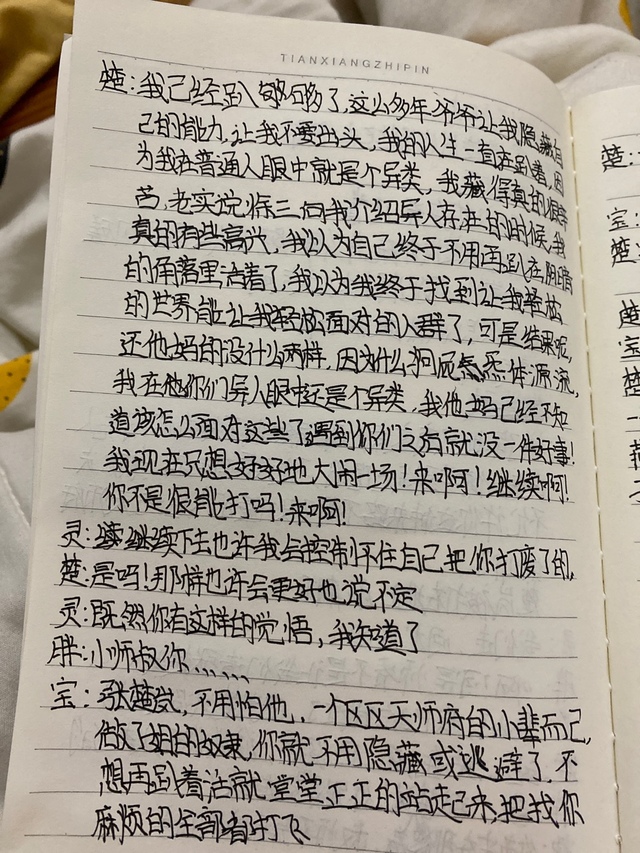 TIANXIANGZHIPIN
楚:我已经趴够够了,这么多年爷爷让我隐藏自
己的能力,让我不要出头,我的人生一直在趴着,因
为我在普通人眼中就是个异类,我藏得真的很辛
苦,老实说徐三向我介绍异人存在的时候,我
真的有些高兴,我以为自己终于不用再趴在阴暗
的角落里活着了,我以为我终于找到让我释放
的世界能让我轻松面对的人群了,可是结果呢,
还他妈的没什么两样,因为什么狗屁炁体源流,
我在他你们异人眼中还是个异类,我他妈已经不知
道该怎么面对这些了遇到你们之后就没一件好事!
我现在只想好好地大闹一场!来啊!继续啊!
你不是很能打吗!来啊!
灵:继续下去也许我会控制不住自己把你打废了的,
楚:是吗!那样也许会更好也说不定
灵:既然你有这样的觉悟,我知道了
胖:小师叔你……
宝:张楚岚,不用怕他,一个区区天师府的小辈而已,
做了姐的奴隶,你就不用隐藏或逃避了,不
想再趴着活就堂堂正正的站起来,把找你
麻烦的全部都打飞
楚:
宝:
楚:
楚
宝
楚